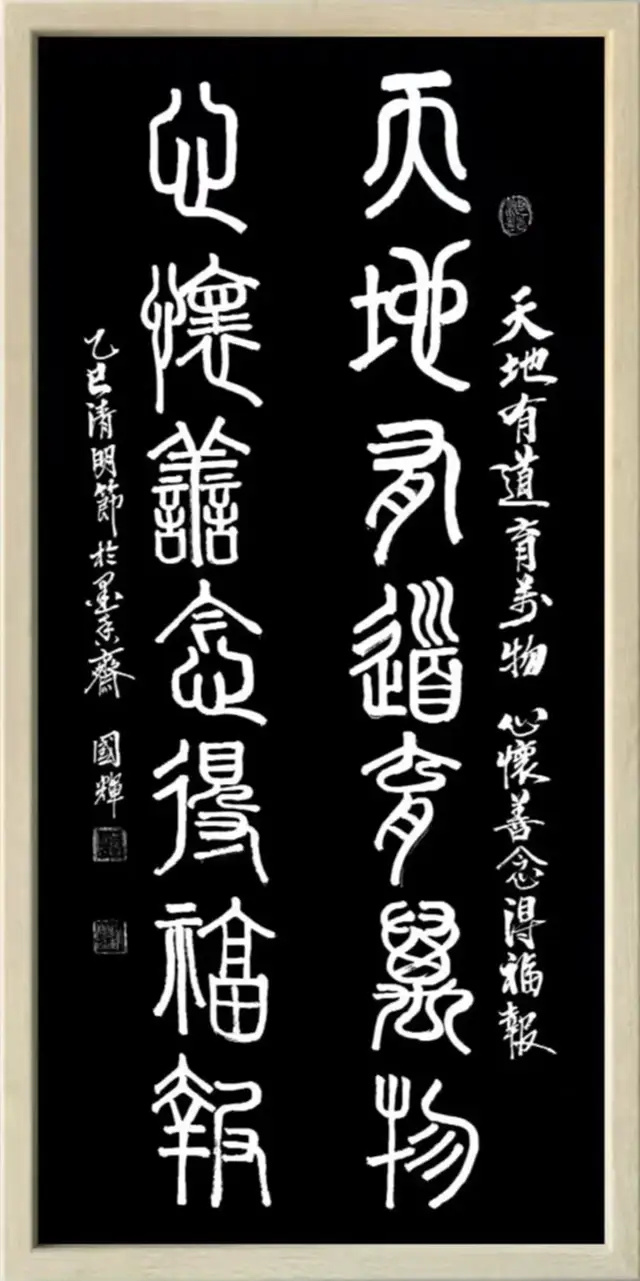 天地有道育萬物 心懷善念得福報
天地有道育萬物
心懷善念得福報
乙巳清明節於墨香齋 國輝